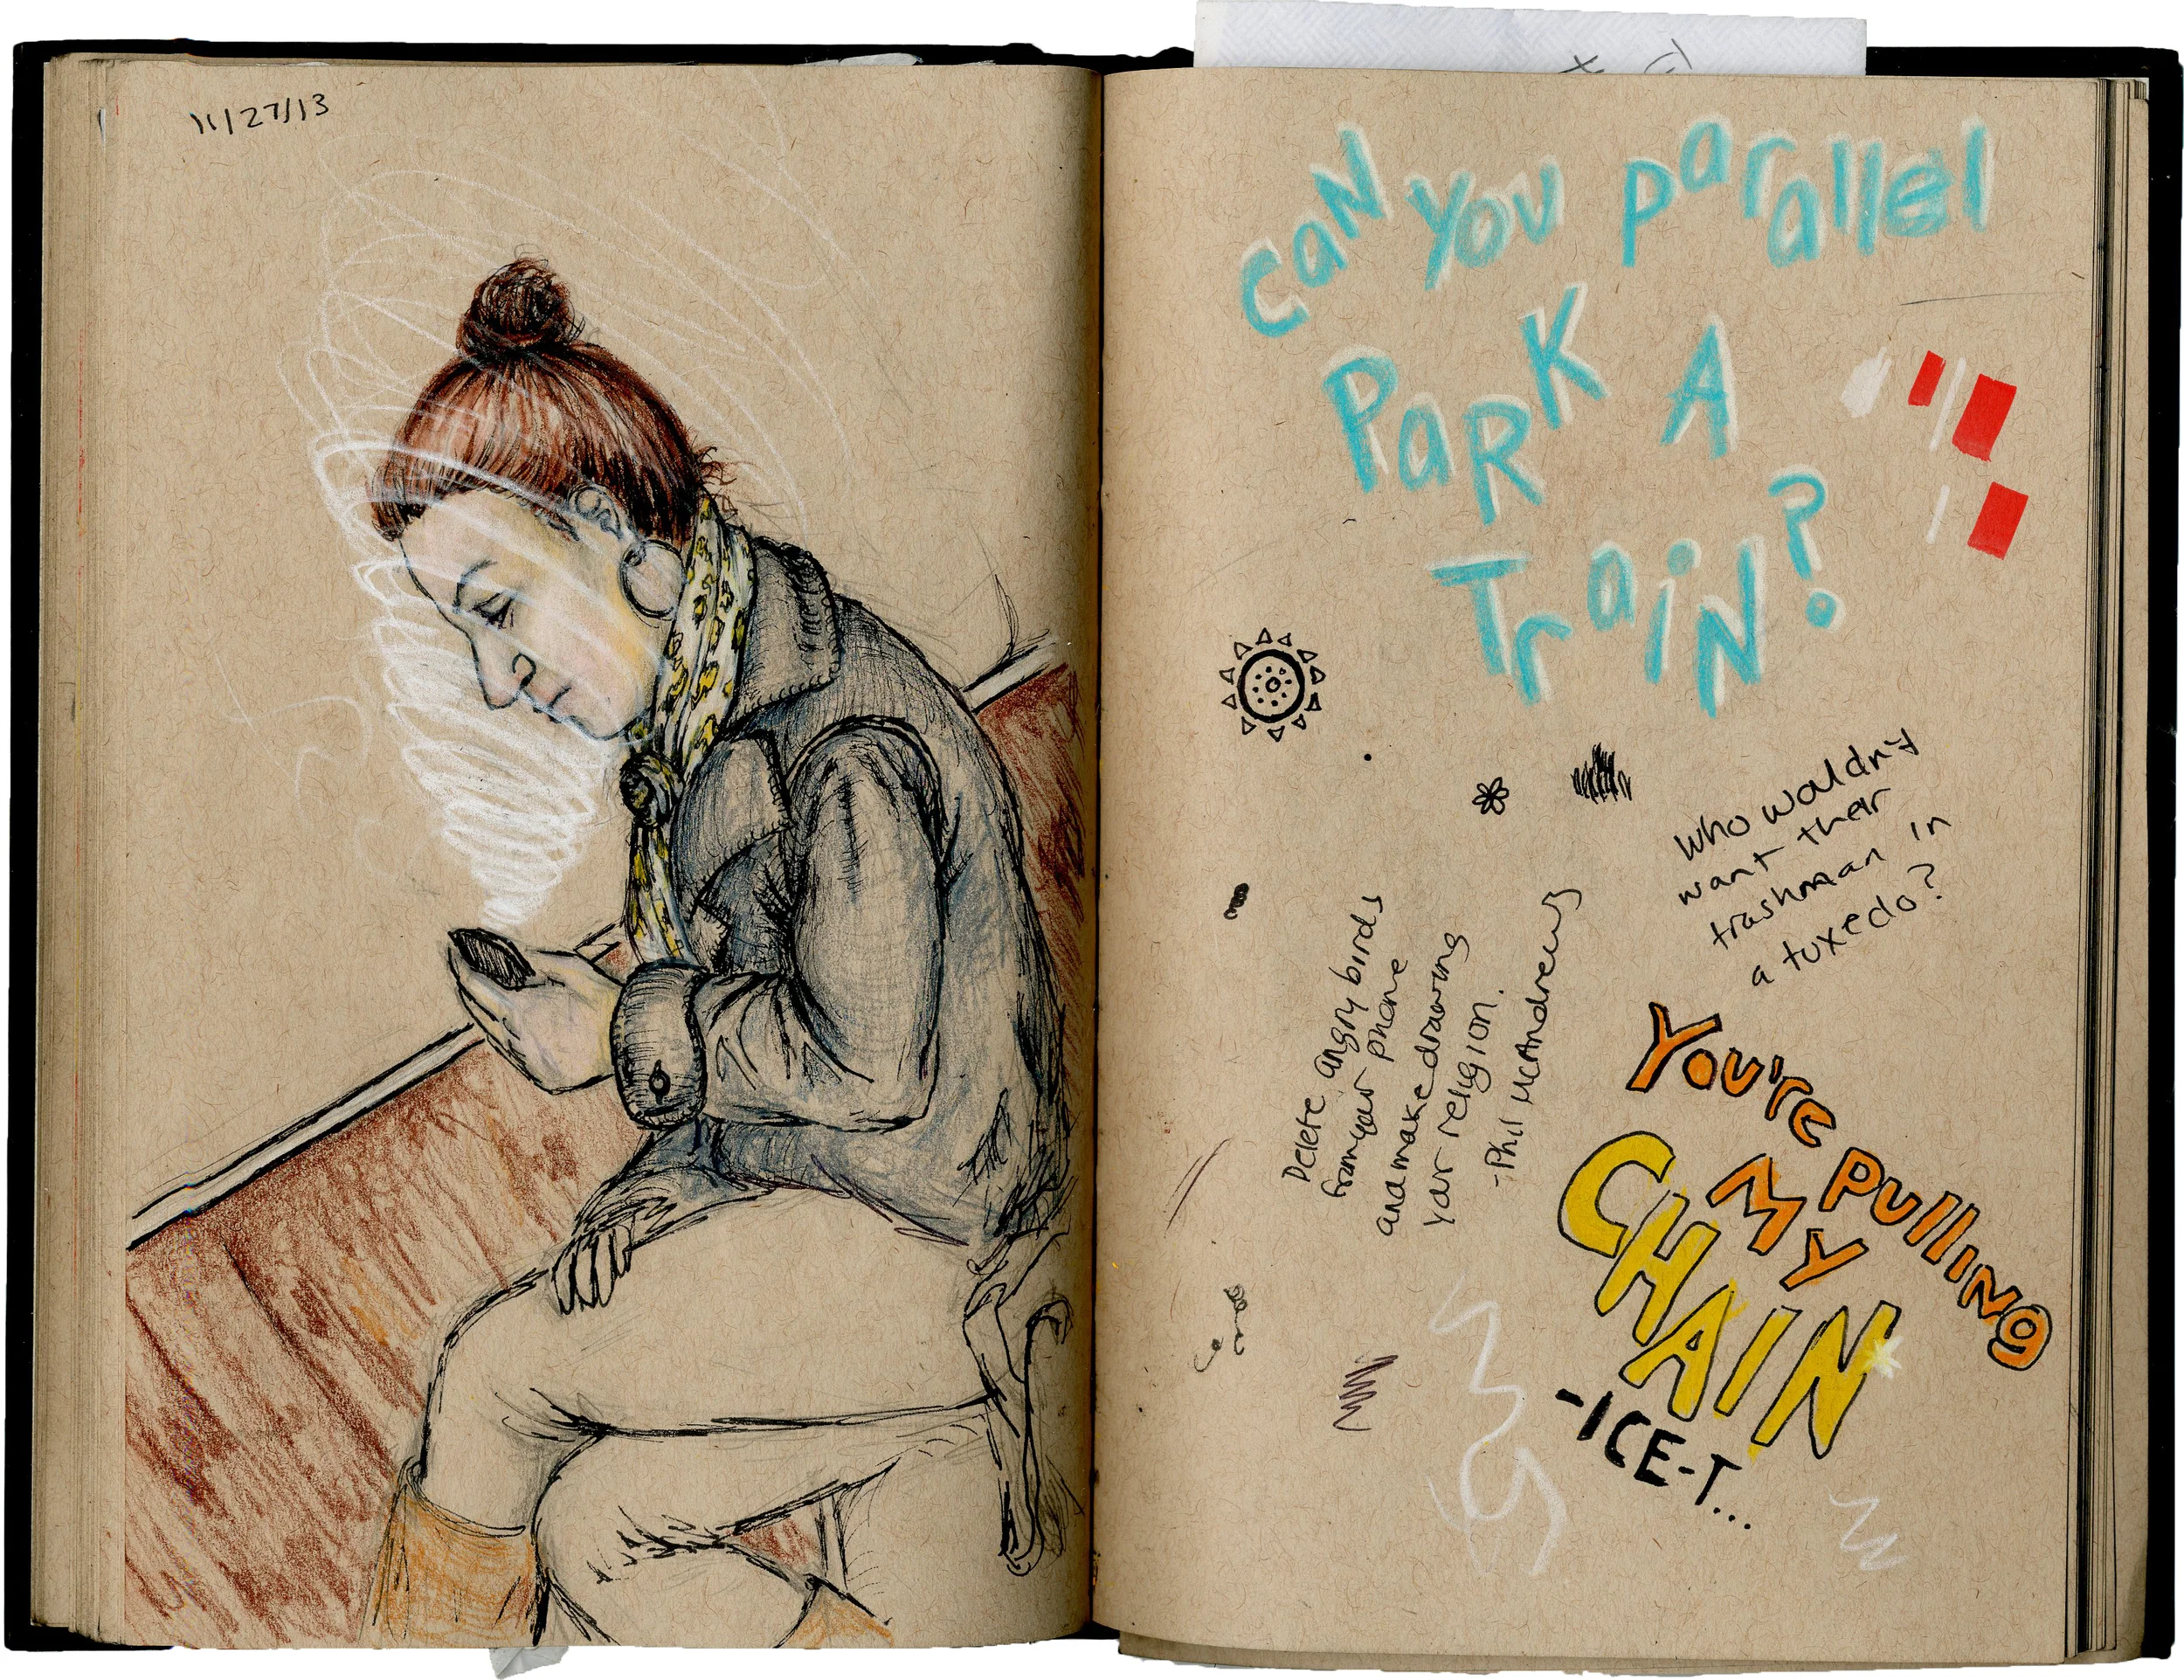 11/27/13
can you parallel
PaRK A
TraiN?
who wouldn't
want their
trashman in
a tuxedo?
Delete angry birds
from your phone
and make drawing
your religion.
-Phil McAndrews
You're Pulling
MY
CHAIN
-ICE-T...